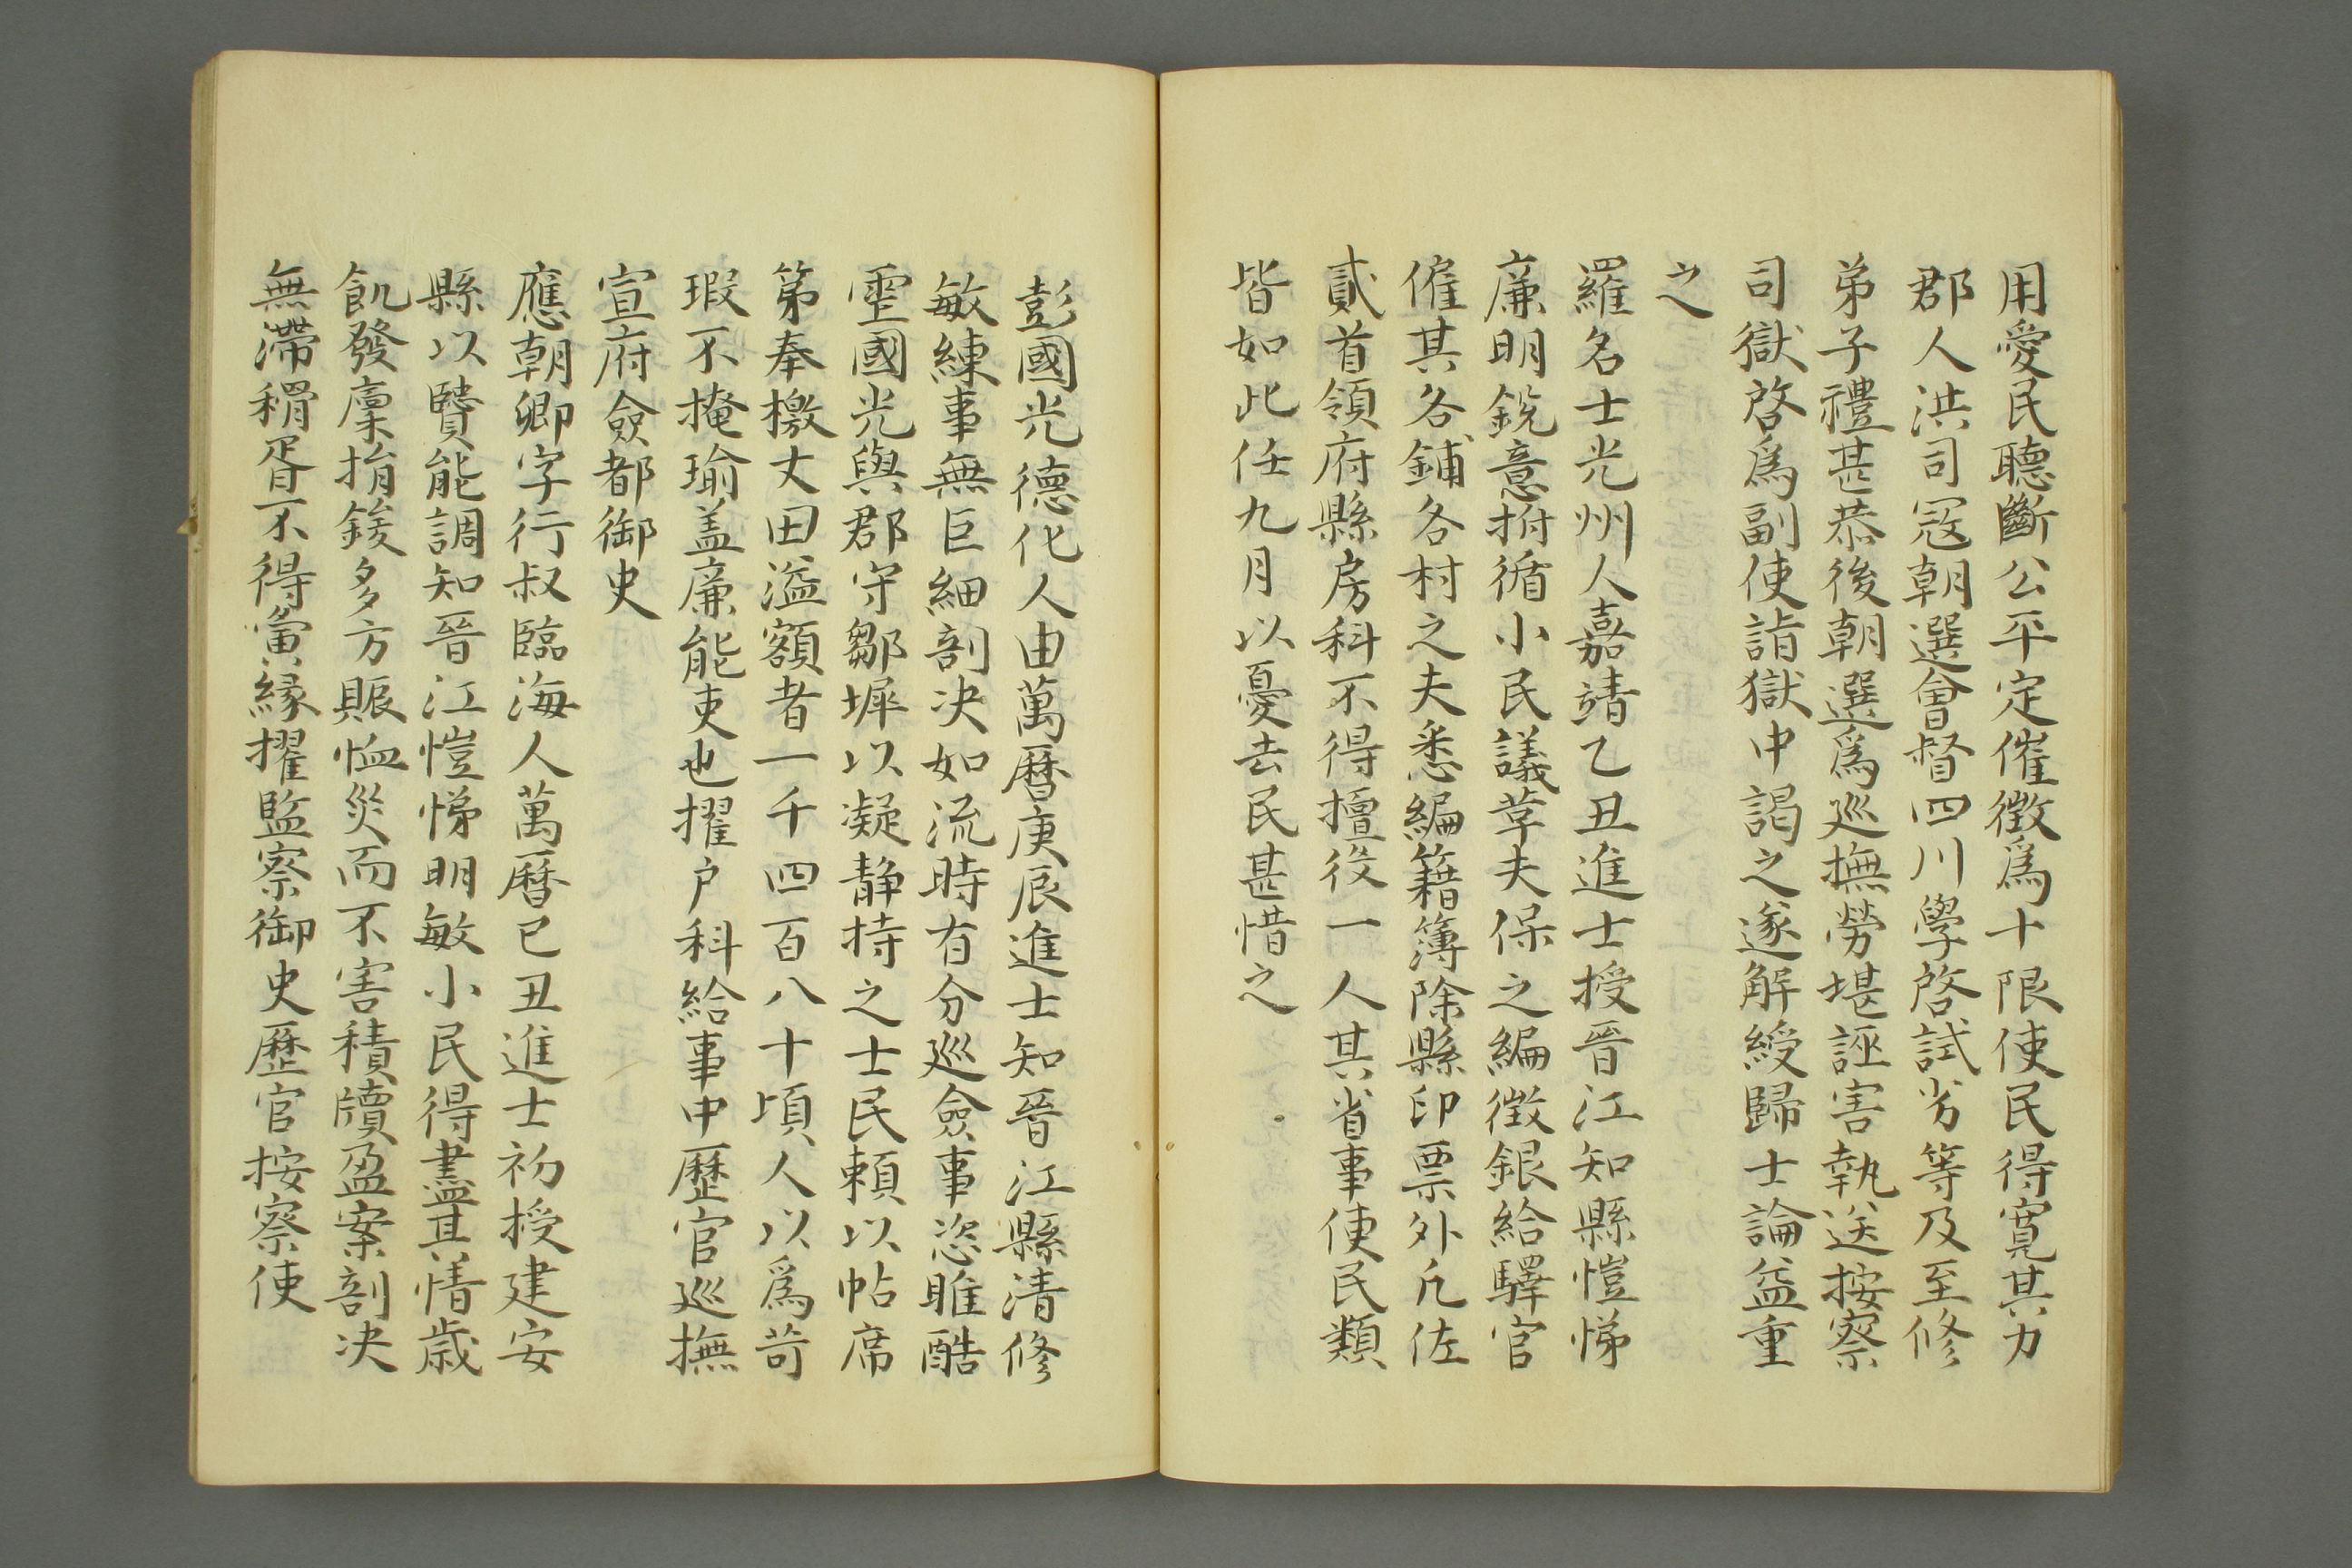 用愛民聽斷公平定催徵爲十限使民得寛其力
郡人洪司冦朝選會督四川學啓試劣等及至修
弟子禮甚恭後朝選爲廵撫勞堪誣害執送按察
司獄啓爲副使詣獄中謁之遂解綬歸士論益重
之
羅名士光州人嘉靖乙丑進士授晉江知縣愷悌
廉明銳意拊循小民議草夫保之編徴銀給驛官
僱其各鋪各村之夫悉編籍簿除縣印票外凡佐
貳首領府縣房科不得擅役一人其省事使民類
皆如此任九月以憂去民甚惜之
彭國光德化人由萬曆庚辰進士知晉江縣清修
敏練事無巨細剖决如流時有分廵僉事恣睢酷
國光與郡守鄒墀以凝静持之士民頼以帖席
第奉檄丈田溢額者一千四百八十頃人以爲苛
瑕不掩瑜盖廉能吏也擢户科給事中歷官廵撫
宣府僉都御史
應朝卿字行叔臨海人萬曆已丑進士初授建安
縣以賢能調知晉江愷悌明敏小民得盡其情歳
飢發廩捐鍰多方賑恤災而不害積牘盈案剖决
無滯猾胥不得夤緣擢監察御史歷官按察使